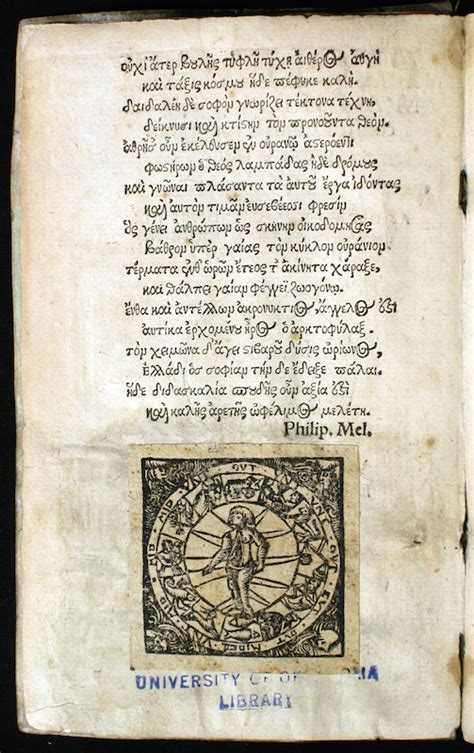 οὐχὶ ἄτερ βουλῆς τυφλῆ τύχη αἰθέρος αὐγὴ
καὶ τάξις κόσμου ἥδε πέφυκε καλή.
δαιδαλέη δὲ σοφὸν γνωρίζει τέκτονα τέχνη,
δείκνυσι καὶ κτίστην τὸν προνοοῦντα θεόν.
οὖν ἐκέλευσεν ἐν οὐρανῷ ἀστερόεντι
φωστήρων ὁ θεὸς λαμπάδας ἠδὲ δρόμους
καὶ γνῶναι πλάσαντα τὰ αὐτοῦ ἔργα ἰδόντας
καὶ αὐτὸν τιμᾶν εὐσεβέεσσι φρεσίν
ὃς γένει ἀνθρώπων ὡς σκηνὴν οἰκοδομήσας
βάθρον ὑπὲρ γαίας τὸν κύκλον οὐράνιον
τέρματα ὡρῶν ἔτεος τ' ἀκίνητα χάραξε,
καὶ θάλπει γαῖαν φέγγεϊ ζωογόνῳ.
ἔνθα καὶ ἀντέλλων ἀκρονυκτιος, ἄγγελός ἐστι
αὐτίκα ἐρχομένου ἦρος ὁ ἀρκτοφύλαξ.
τὸν χειμῶνα δ' ἄγει στιβαροῦ δύσις ὠρίωνος,
Ἑλλάδι ὃς σοφίαν τήνδε ἔδειξε πάλαι.
ἥδε διδασκαλία σπουδῆς οὖν ἀξία ἐστὶ
καὶ καλῆς ἀρετῆς ὠφέλιμος μελέτη.
Philip. Mel.
UNIVERSITY OF
LIBRARY